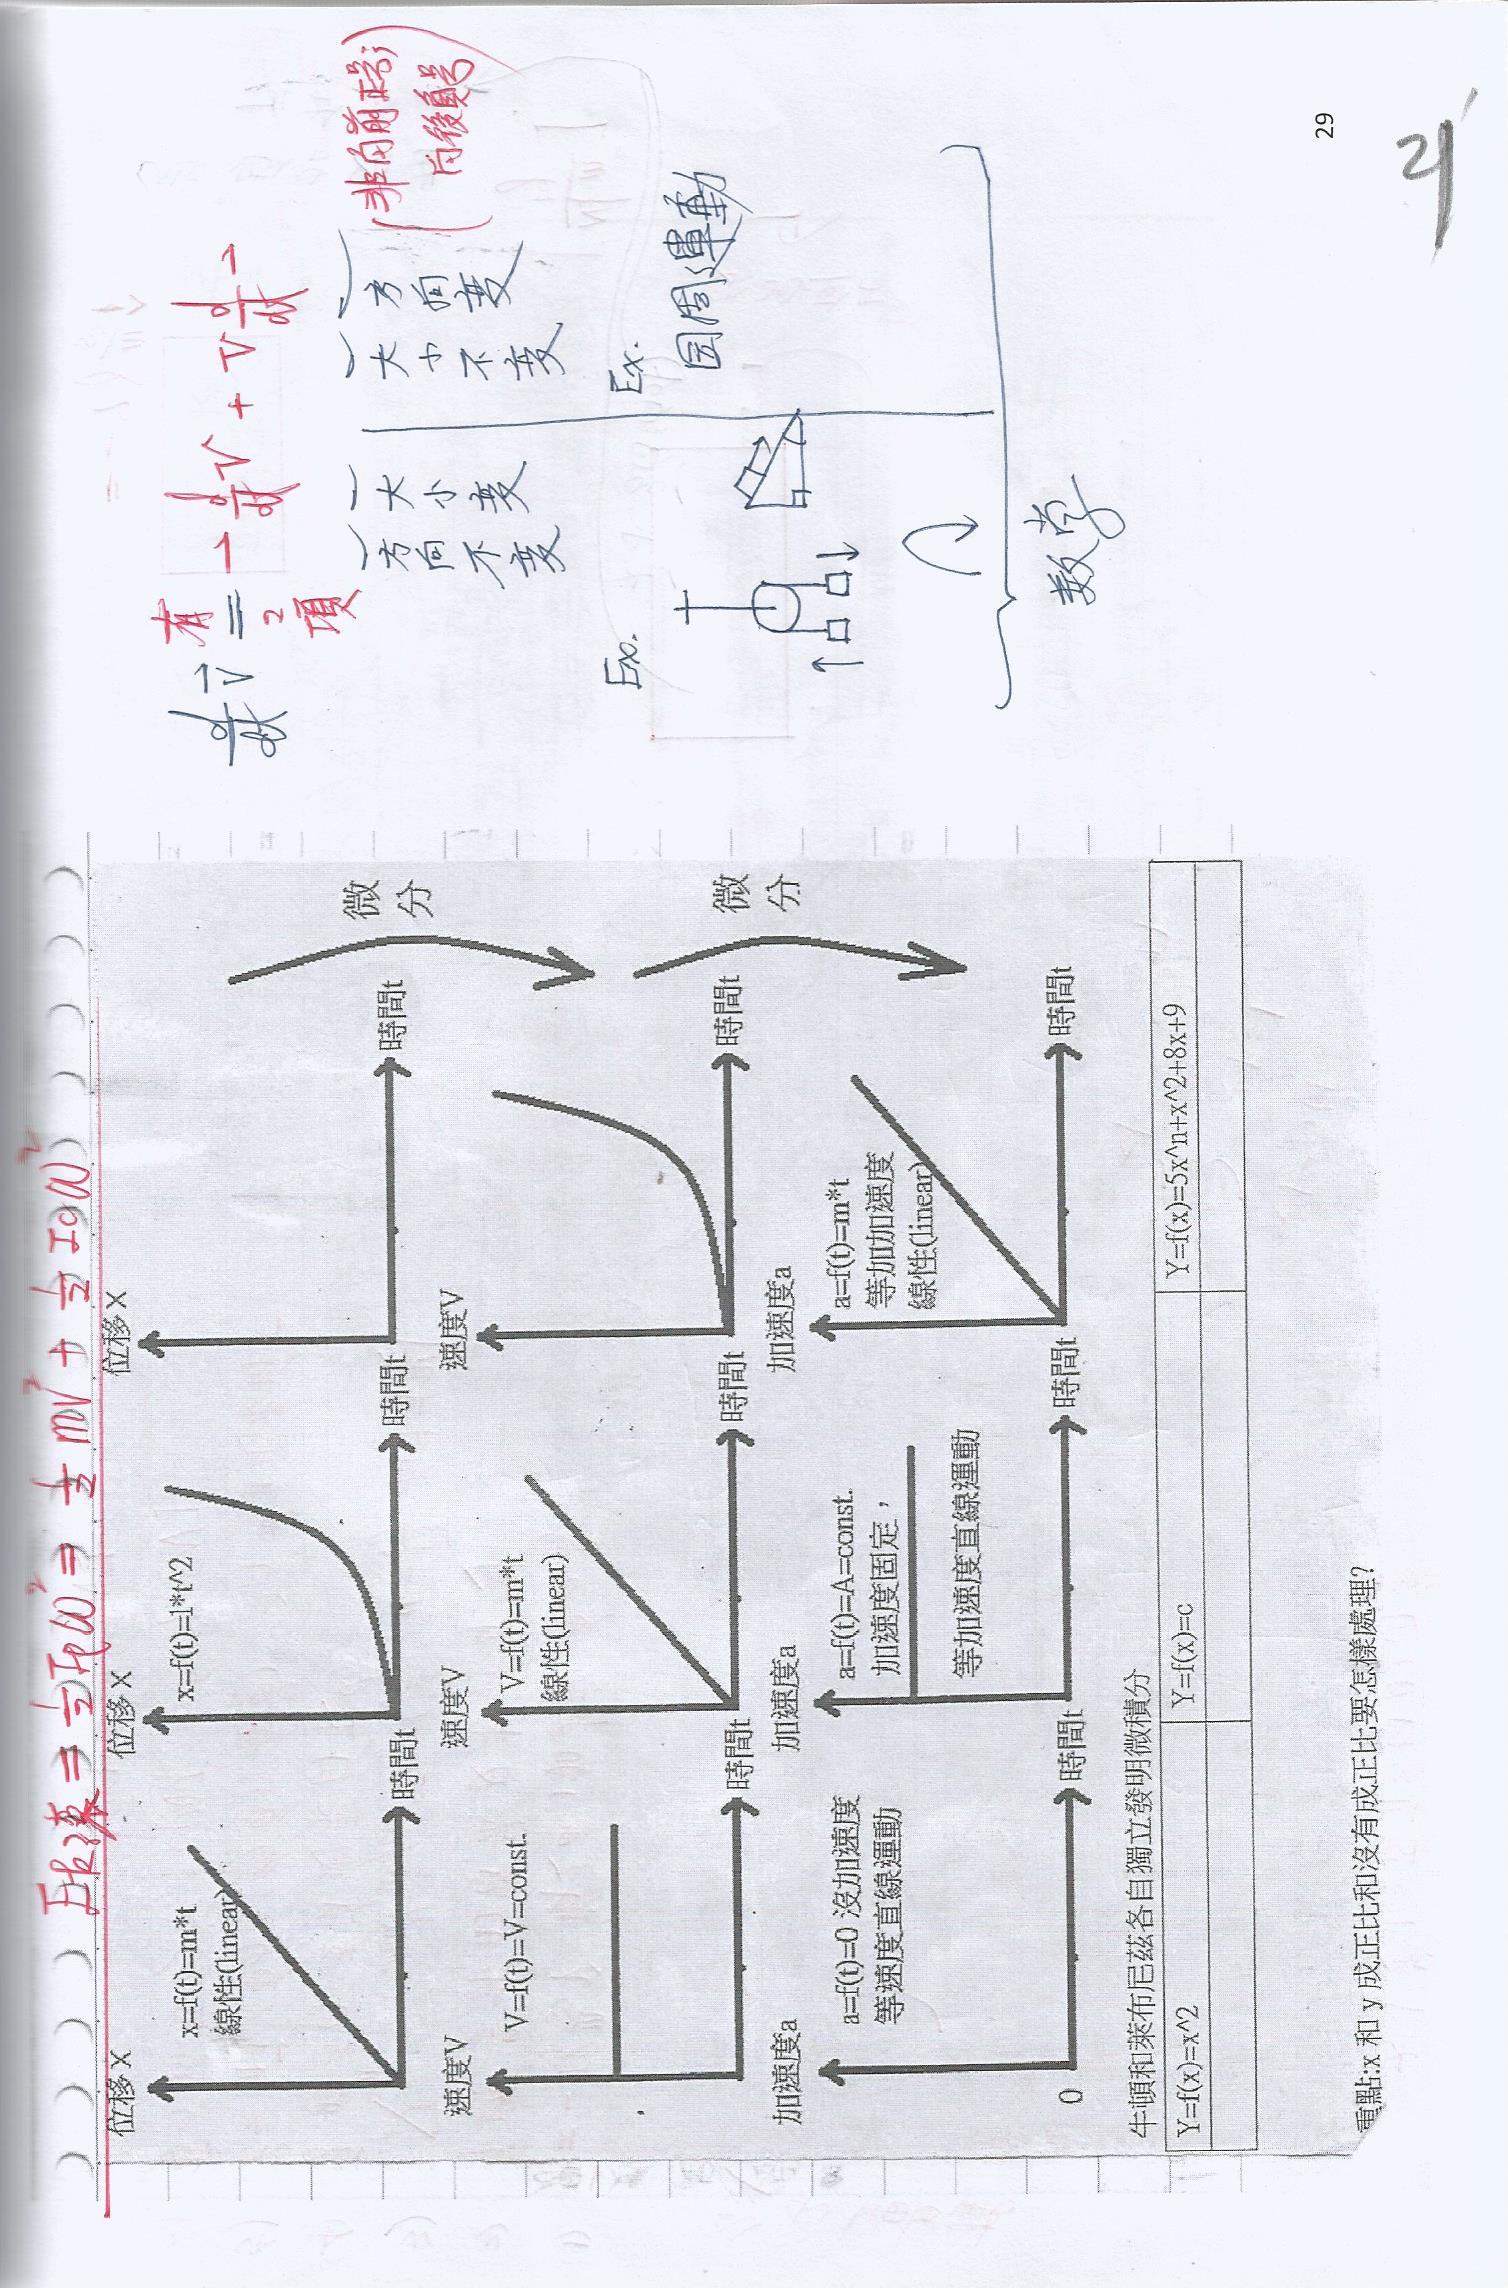 Ek滾 = ½ Ip ω² = ½ mv² + ½ Ic ω²
位移 X
x=f(t)=m*t
線性(linear)
時間t
位移 X
x=f(t)=1*t^2
時間t
位移 X
時間t
微
分
速度V
V=f(t)=V=const.
時間t
速度V
V=f(t)=m*t
線性(linear)
時間t
速度V
時間t
微
分
加速度a
a=f(t)=0 沒加速度
等速度直線運動
0
時間t
加速度a
a=f(t)=A=const.
加速度固定，
等加速度直線運動
時間t
加速度a
a=f(t)=m*t
等加加速度
線性(linear)
時間t
牛頓和萊布尼茲各自獨立發明微積分
Y=f(x)=x^2
Y=f(x)=c
Y=f(x)=5x^n+x^2+8x+9
重點:x 和 y 成正比和沒有成正比要怎樣處理?
有
2
項
方向不變
大小變
大小不變
方向變
(非向前正号;
向後負号)
Ex.
Ex.
圆周運動
数学
29